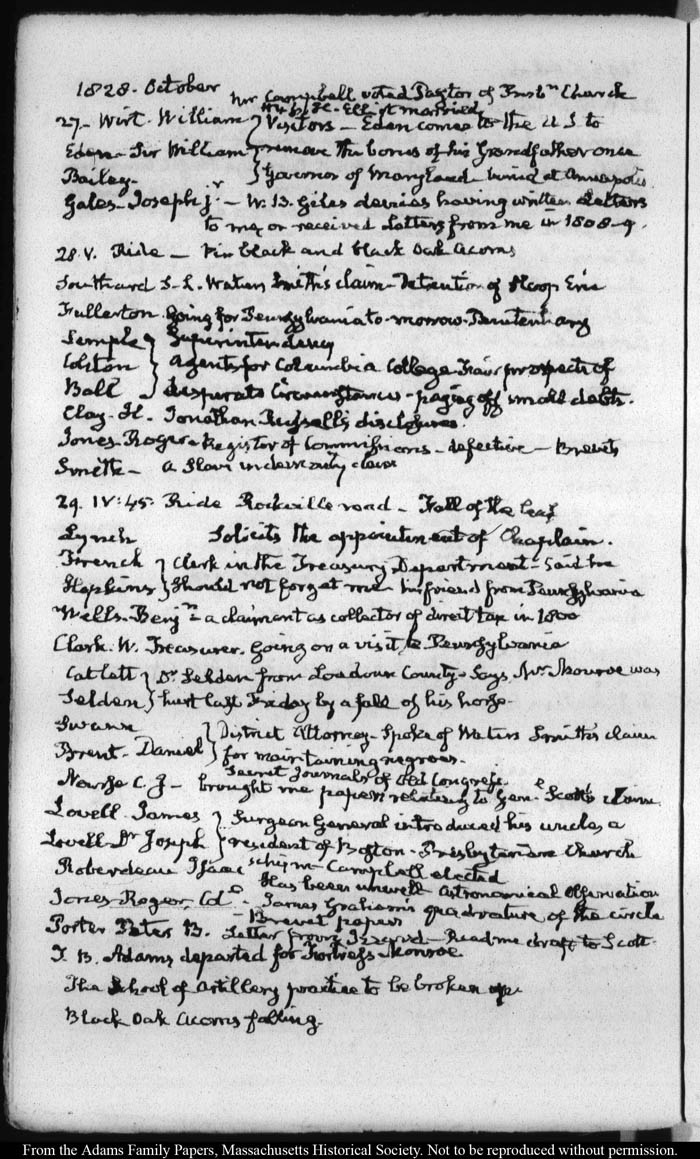 1828. October
Mr Campbell voted Pastor of Presbn. Church
Mr & H. Elliot married
27. Wirt. William } Visitors — Eden comes to the U S to
Eden. Sir William } remove the bones of his Grandfather once
Bailey. } Governor of Maryland. buried at Annapolis
Gales. Joseph jr. — W. B. Giles denies having written Letters
to me, or received Letters from me in 1808-9.
28. V. Ride — Pin black and black Oak Acorns
Southard S. L. Waters Smith's claim. Detention of Sloop Erie
Fullerton. going for Pennsylvania to-morrow. Penitentiary
Semple } Superintendency
Colston } Agents for Columbia College. Fair prospects of
Ball } desperate Circumstances. paying off small debts.
Clay. H. Jonathan Russell's disclosures.
Jones. Roger. Register of Commissions. defective — Brevets
Smith — a Slave indemnity claim
29. IV:45. Ride Rockville road. Fall of the leaf
Lynch Solicits the appointment of Chaplain.
French } Clerk in the Treasury Department. Said he
Hopkins } should not forget me. his friend from Pennsylvania
Wells. Benjn. a claimant as collector of direct tax in 1800
Clark. W. Treasurer. going on a visit to Pennsylvania
Catlett } Dr. Selden from Loudoun County. Says Mr. Monroe was
Selden } hurt last Friday by a fall of his horse.
Swann } District Attorney. Spoke of Waters Smith's claim
Brent. Daniel } for maintaining negroes.
Secret Journals of Old Congress.
Nourse C. J — brought me papers relating to Genl. Scott's claim
Lovell. James } Surgeon General introduced his uncle, a
Lovell. Dr Joseph } resident of Boston. Presbyterian Church
schism. Campbell elected
Roberdeau Isaac Has been unwell. Astronomical Observation
Jones. Roger. Col. — James Graham's quadrature of the circle
— Brevet papers
Porter Peter B. Letter from Izard. Read me draft to Scott.
T. B. Adams departed for Fortress Monroe
The School of Artillery practice to be broken up.
Black Oak Acorns falling.
From the Adams Family Papers, Massachusetts Historical Society. Not to be reproduced without permission.